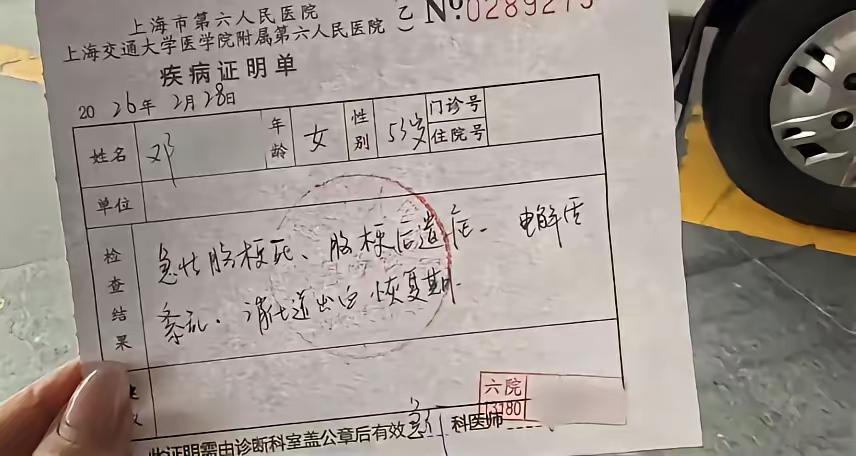 上海市第六人民医院
上海交通大学医学院附属第六人民医院
乙 No.0289275
疾病证明单
2026年2月28日
姓名 邓 年龄 女 性别 53岁 门诊号 住院号
单位
检查结果 急性脑梗死、脑梗后遗症、电解质
紊乱、消化道出血恢复期
六院
3180
此证明需由诊断科室盖公章后有效 科医师